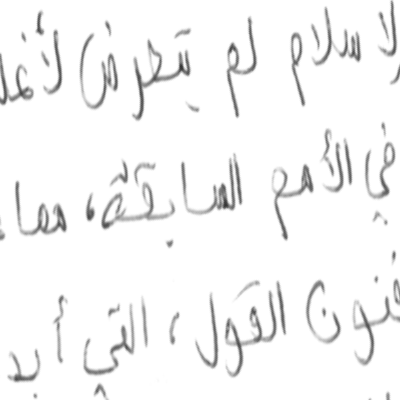 لاسلام لم يتعرض لأغلا
في الأمم السابقة، مما
فنون القول، التي أبد